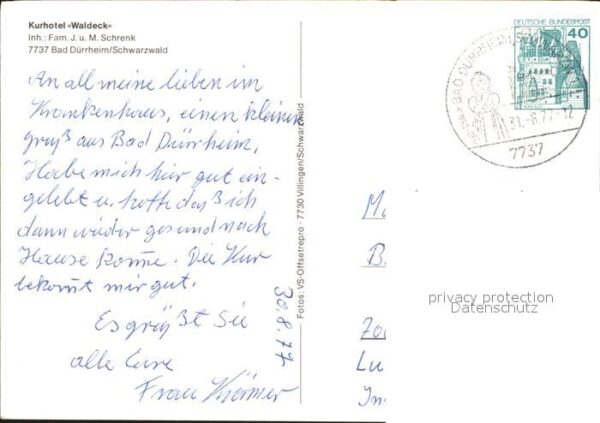 Kurhotel »Waldeck«
Inh.: Fam. J. u. M. Schrenk
7737 Bad Dürrheim/Schwarzwald
An all meine lieben im
Krankenhaus, einen kleinen
gruß aus Bad Dürrheim,
Habe mich hier gut ein-
gelebt u. hoffe daß ich
dann wieder gesund nach
Hause komme. Die Kur
bekomt mir gut.
Es grüßt Sie
alle Eure
Frau
30.8.77
Fotos: VS-Offsetrepro · 7730 Villingen/Schwarzwald
DEUTSCHE BUNDESPOST
40
BAD DÜRRHEIM
31.-8.77-12
7737
privacy protection
Datenschutz